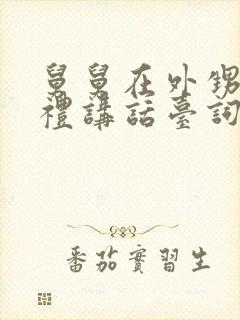 舅舅在外甥
禮講話臺詞
番茄實習生